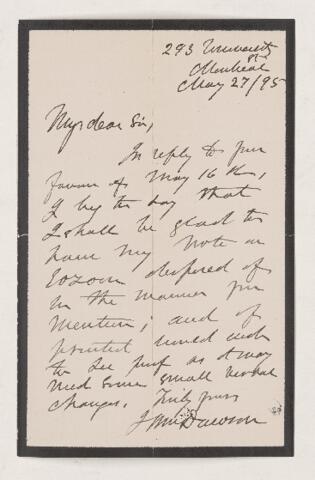 293 University
St
Montreal
May 27/95
My dear Sir,
In reply to your
favour of May 16th,
I beg to say that
I shall be glad to
have my note on
Eozoon disposed of
in the manner you
mention; and if
printed would wish
to see proof as it may
need some small verbal
changes. Truly yours
J Wm Dawson